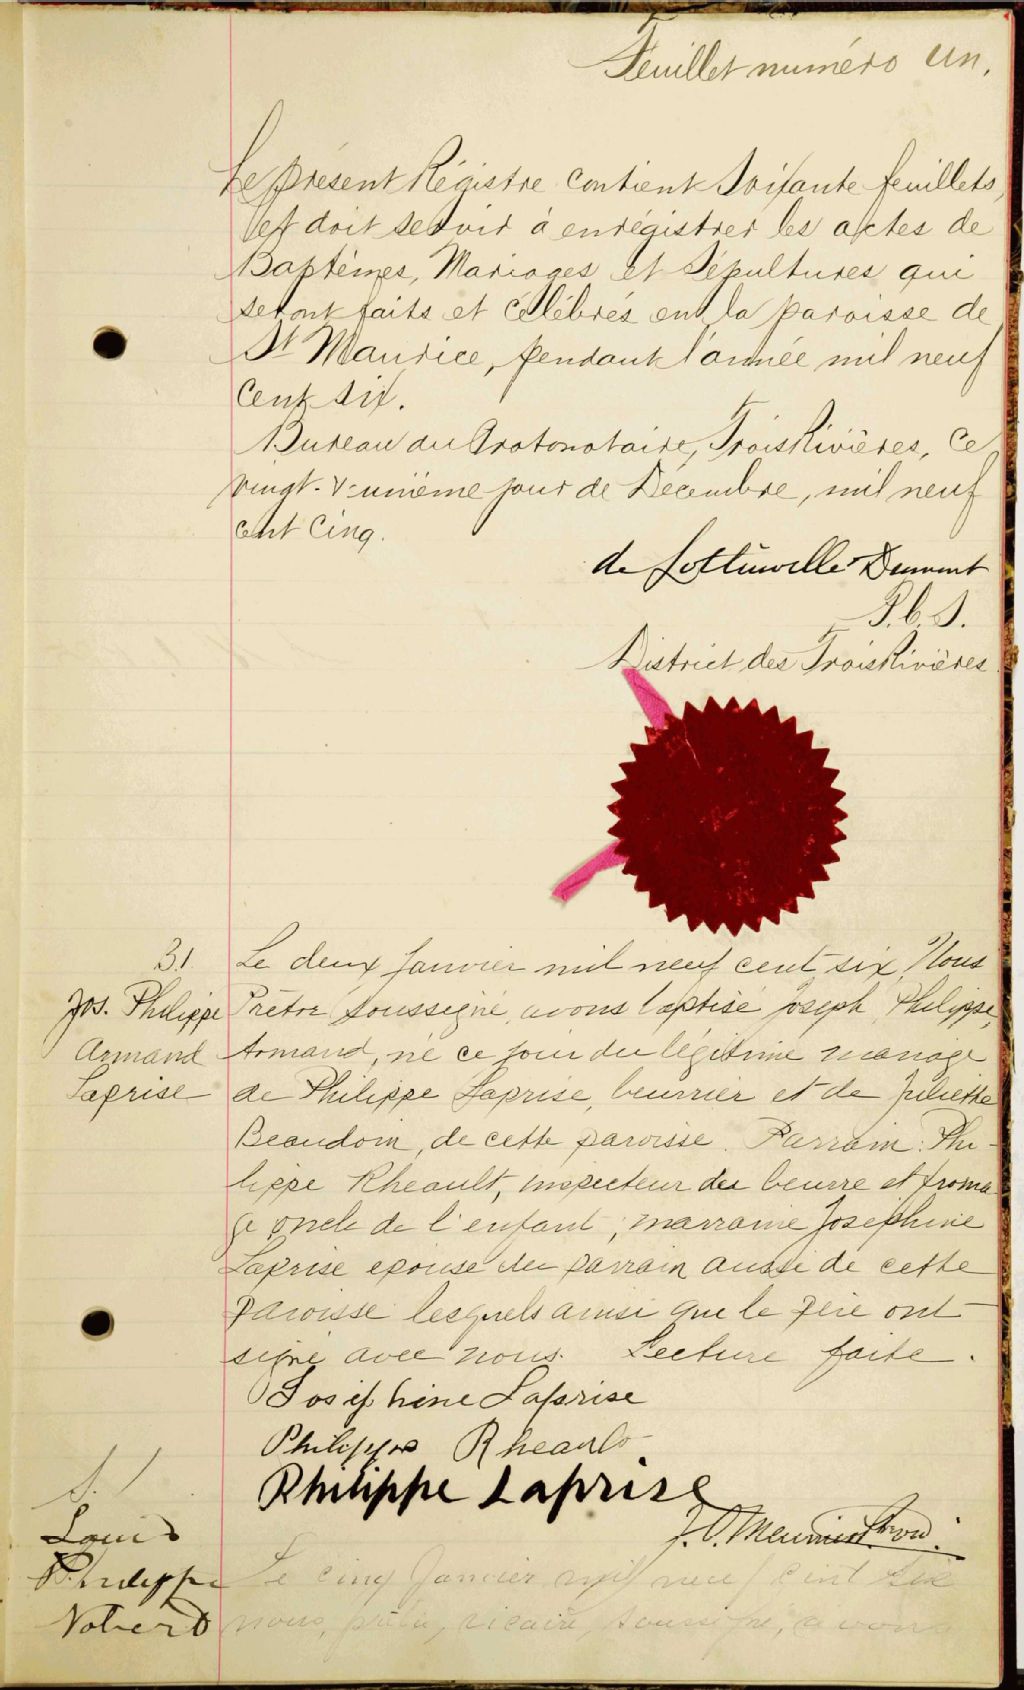 Feuillet numéro un.
Le présent Régistre contient soixante feuillets,
et doit servir à enrégistrer les actes de
Baptêmes, Mariages et Sépultures qui
seront faits et célébrés en la paroisse de
St Maurice, pendant l'année mil neuf
cent six.
Bureau du Protonotaire, Trois Rivières, ce
vingt-&-unième jour de Décembre, mil neuf
cent cinq.
de Lottinville Dumont
P.C.S.
District des Trois Rivières.
B.1 Le deux Janvier mil neuf cent six, Nous
Jos. Philippe Prêtre soussigné, avons baptisé Joseph, Philippe,
Armand Armand, né ce jour du légitime mariage
Laprise de Philippe Laprise, beurrier et de Juliette
Beaudoin, de cette paroisse. Parrain: Phi-
lippe Rheault, inspecteur de beurre et froma
ge oncle de l'enfant; marraine Joséphine
Laprise epouse du parrain aussi de cette
paroisse lesquels ainsi que le père ont
signé avec nous. Lecture faite.
Joséphine Laprise
Philippe Rheault
Philippe Laprise
J.O. Meunier
S. 1
Louis
Philippe Le cinq Janvier mil neuf cent six
Nobert nous, prêtre, vicaire, soussigné, avons